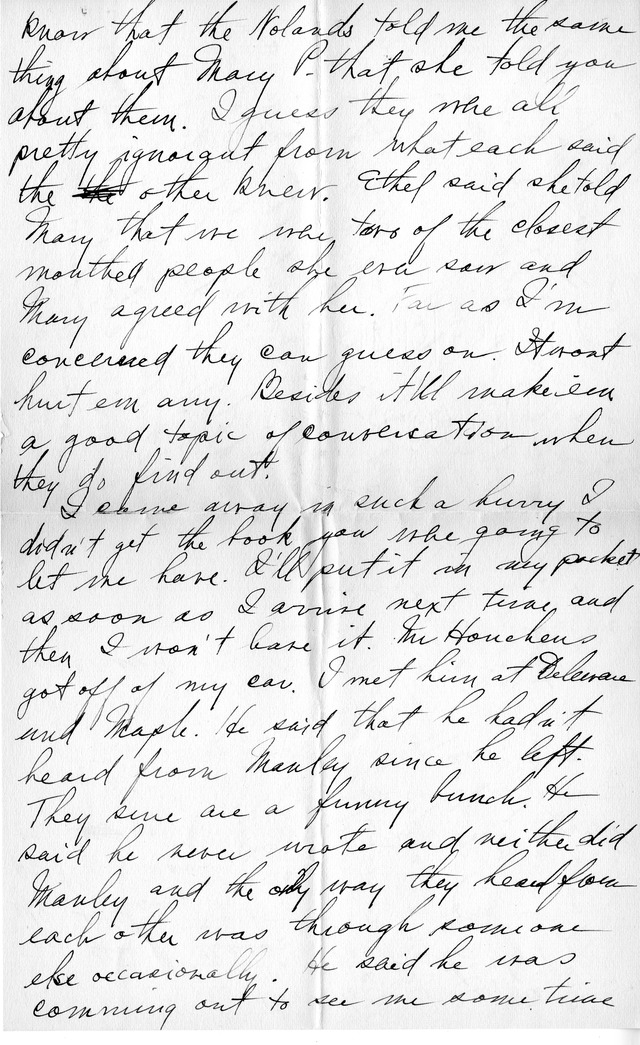 know that the Nolands told me the same
thing about Mary P. that she told you
about them. I guess they whe all
pretty ignorant from what each said
the other knew. Ethel said she told
Mary that we whe two of the closest
mouthed people she ever saw and
Mary agreed with her. Far as I'm
concerned they can guess on. It wont
hurt em any. Besides it'll make em
a good topic of conversation when
they do find out.
I came away in such a hurry I
didn't get the book you whe going to
let me have. I'll put it in my pocket
as soon as I arrive next time and
then I won't leave it. Mr Houchens
got off of my car. I met him at Deleware
and Maple. He said that he hadn't
heard from Manley since he left.
They sure are a funny bunch. He
said he never wrote and neither did
Manley and the only way they heard from
each other was through someone
else occasionally. He said he was
comming out to see me some time